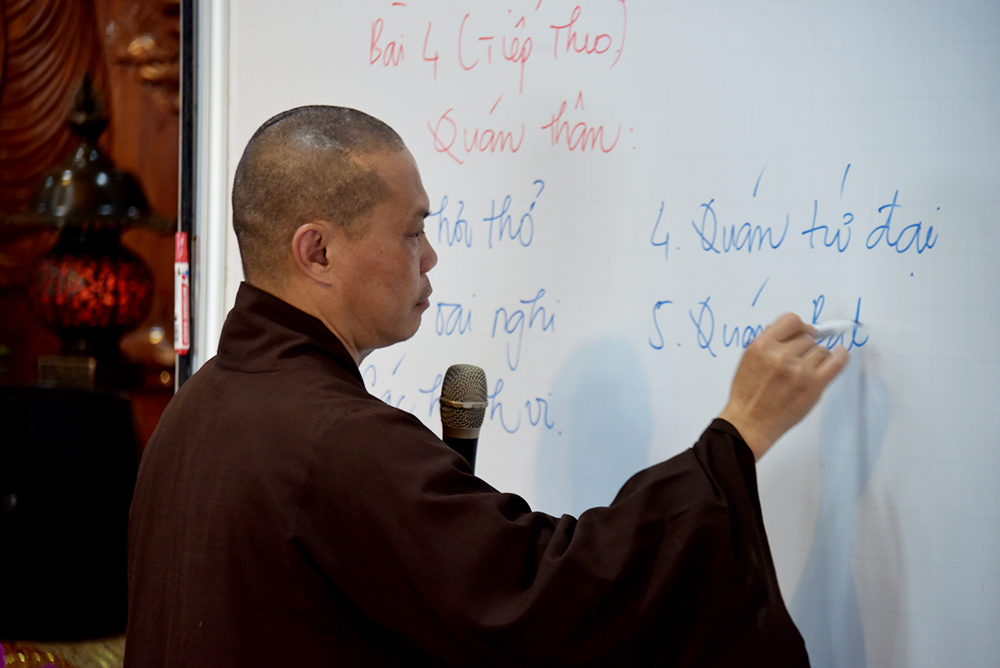 Bài 4 (Tiếp Theo)
Quán thân:
thở
oai nghi
vi.
4. Quán tứ đại
5. Quán